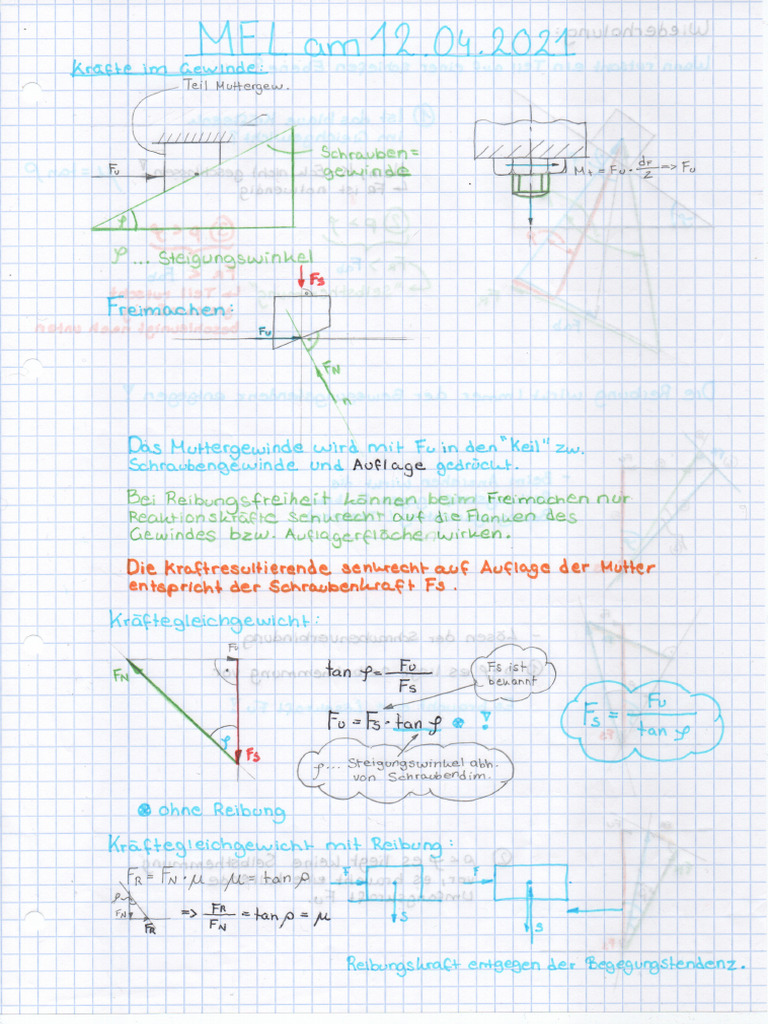 MEL am 12.04.2021
Kräfte im Gewinde:
Teil Muttergew.
Schrauben=
gewinde
Fu
φ
Mt = Fu · dF/2 => Fu
φ ... Steigungswinkel
Fs
Freimachen:
Fu
FN
n
Das Muttergewinde wird mit Fu in den "Keil" zw.
Schraubengewinde und Auflage gedrückt.
Bei Reibungsfreiheit können beim Freimachen nur
Reaktionskräfte senkrecht auf die Flanken des
Gewindes bzw. Auflagerflächen wirken.
Die Kraftresultierende senkrecht auf Auflage der Mutter
entspricht der Schraubenkraft Fs.
Kräftegleichgewicht:
Fu
FN
φ
Fs
tan φ = Fu/Fs
Fs ist
bekannt
Fu = Fs · tan φ ⊛ !
Fs = Fu/tan φ
φ ... Steigungswinkel abh.
von Schraubendim.
⊛ ohne Reibung
Kräftegleichgewicht mit Reibung:
FR = FN · μ μ = tan ρ
ρ
FN
FR
=> FR/FN = tan ρ = μ
F
S
F
S
Reibungskraft entgegen der Begegungstendenz.